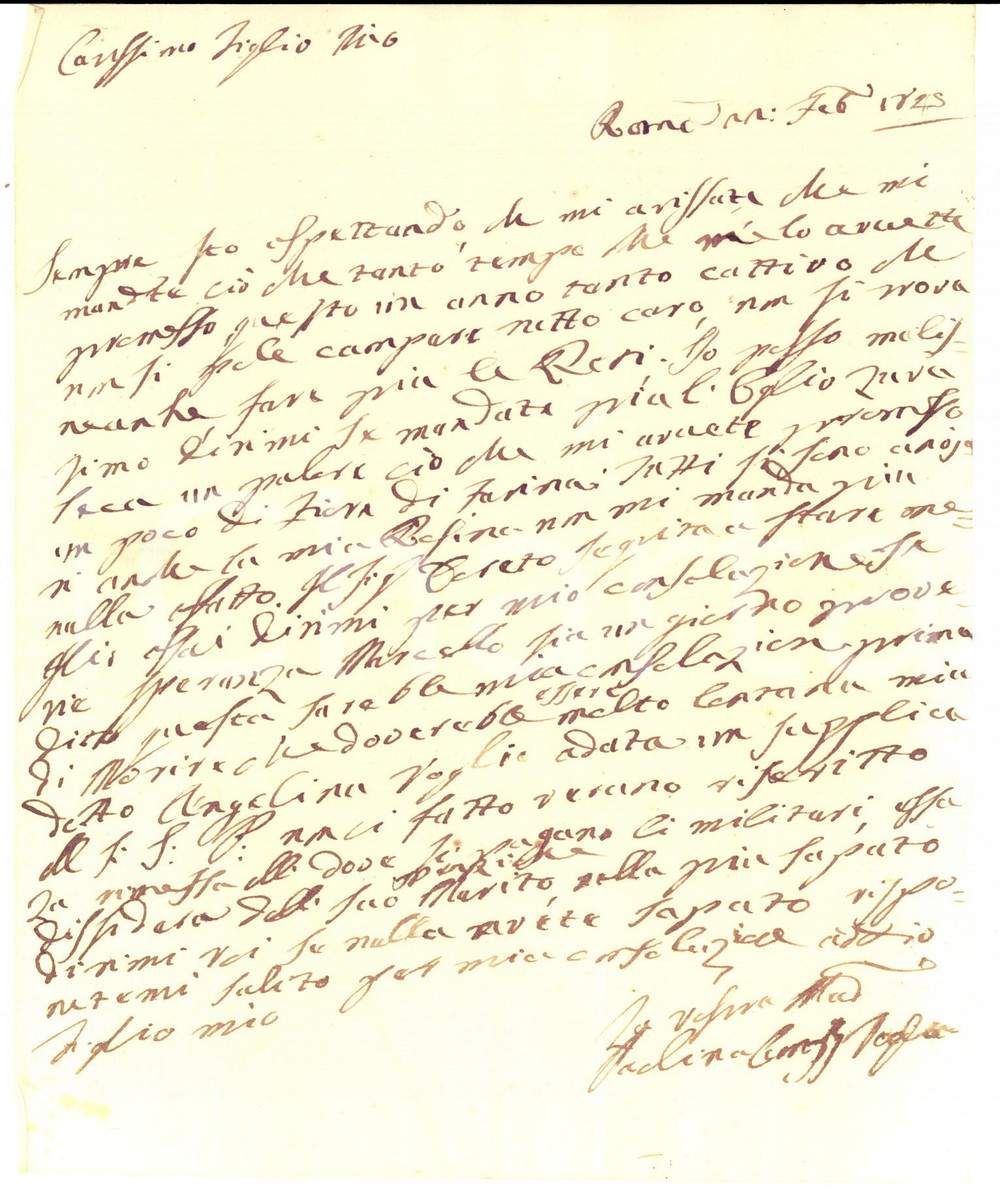 Carissimo Figlio Mio
Roma 22: Feb 1823
Sempre sto aspettando che mi avissate che mi
mandate ciò che tanto tempo che me lo avuette
promesso questo un anno tanto cattivo che
non si pole campare tutto caro, non si trova
neanche fare più le Io posso malis=
simo dirimi se mandate più l'Oglio Zuva
seca un palere ciò che mi avuete promesso
un poco di Fiore di farina. Tutti si sono
ni anche la mia Rosina non mi manda più
nulla affatto. Il Sig seguita a stare me=
glio assai dirimi per mio consolazione se
vie speranza Marcello sia un giorno prove=
ditto questa sarebbe mia consolazione prima
di Morire che doverebbe essere molto lontana mia
detto Angelina Voglio adata un supplica
al S. S. P. anci fatto verano riscritto
La rimessa alli dove si pagano li militari, essa
dissidera delli suo Marito nulla più saputo
dirimi voi se nulla avéte saputo rispo=
netemi subito per mia consolazione addio
Figlio mio
La vostra Mad
Paolina